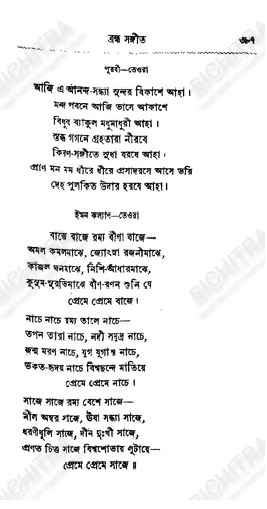 ব্রহ্ম সঙ্গীত
পূরবী—তেওরা
আজি এ আনন্দ-সন্ধ্যা সুন্দর বিকাশে আহা ।
মন্দ পবনে আজি ভাসে আকাশে
বিধুর ব্যাকুল মধুমাধুরী আহা ।
স্তব্ধ গগনে গ্রহতারা নীরবে
কিরণ-সঙ্গীতে সুধা বরষে আহা।
প্রাণ মন মম ধীরে ধীরে প্রসাদরসে আসে ভরি
দেহ পুলকিত উদার হরষে আহা।
ইমন কল্যাণ—তেওরা
বাজে বাজে রম্য বীণা বাজে—
অমল কমলমাঝে, জ্যোৎস্না রজনীমাঝে,
কাজল ঘনমাঝে, নিশি-আঁধারমাঝে,
কুসুম-সুরভিমাঝে বীণ-রণন শুনি যে
প্রেমে প্রেমে বাজে।
নাচে নাচে রম্য তালে নাচে—
তপন তারা নাচে, নদী সমুদ্র নাচে,
জন্ম মরণ নাচে, যুগ যুগান্ত নাচে,
ভকত-হৃদয় নাচে বিশ্বছন্দে মাতিয়ে
প্রেমে প্রেমে নাচে ।
সাজে সাজে রম্য বেশে সাজে—
নীল অম্বর সাজে, ঊষা সন্ধ্যা সাজে,
ধরণীধূলি সাজে, দীন দুঃখী সাজে,
প্রণত চিত্ত সাজে বিশ্বশোভায় লুটায়ে—
প্রেমে প্রেমে সাজে ॥
BICHITRA